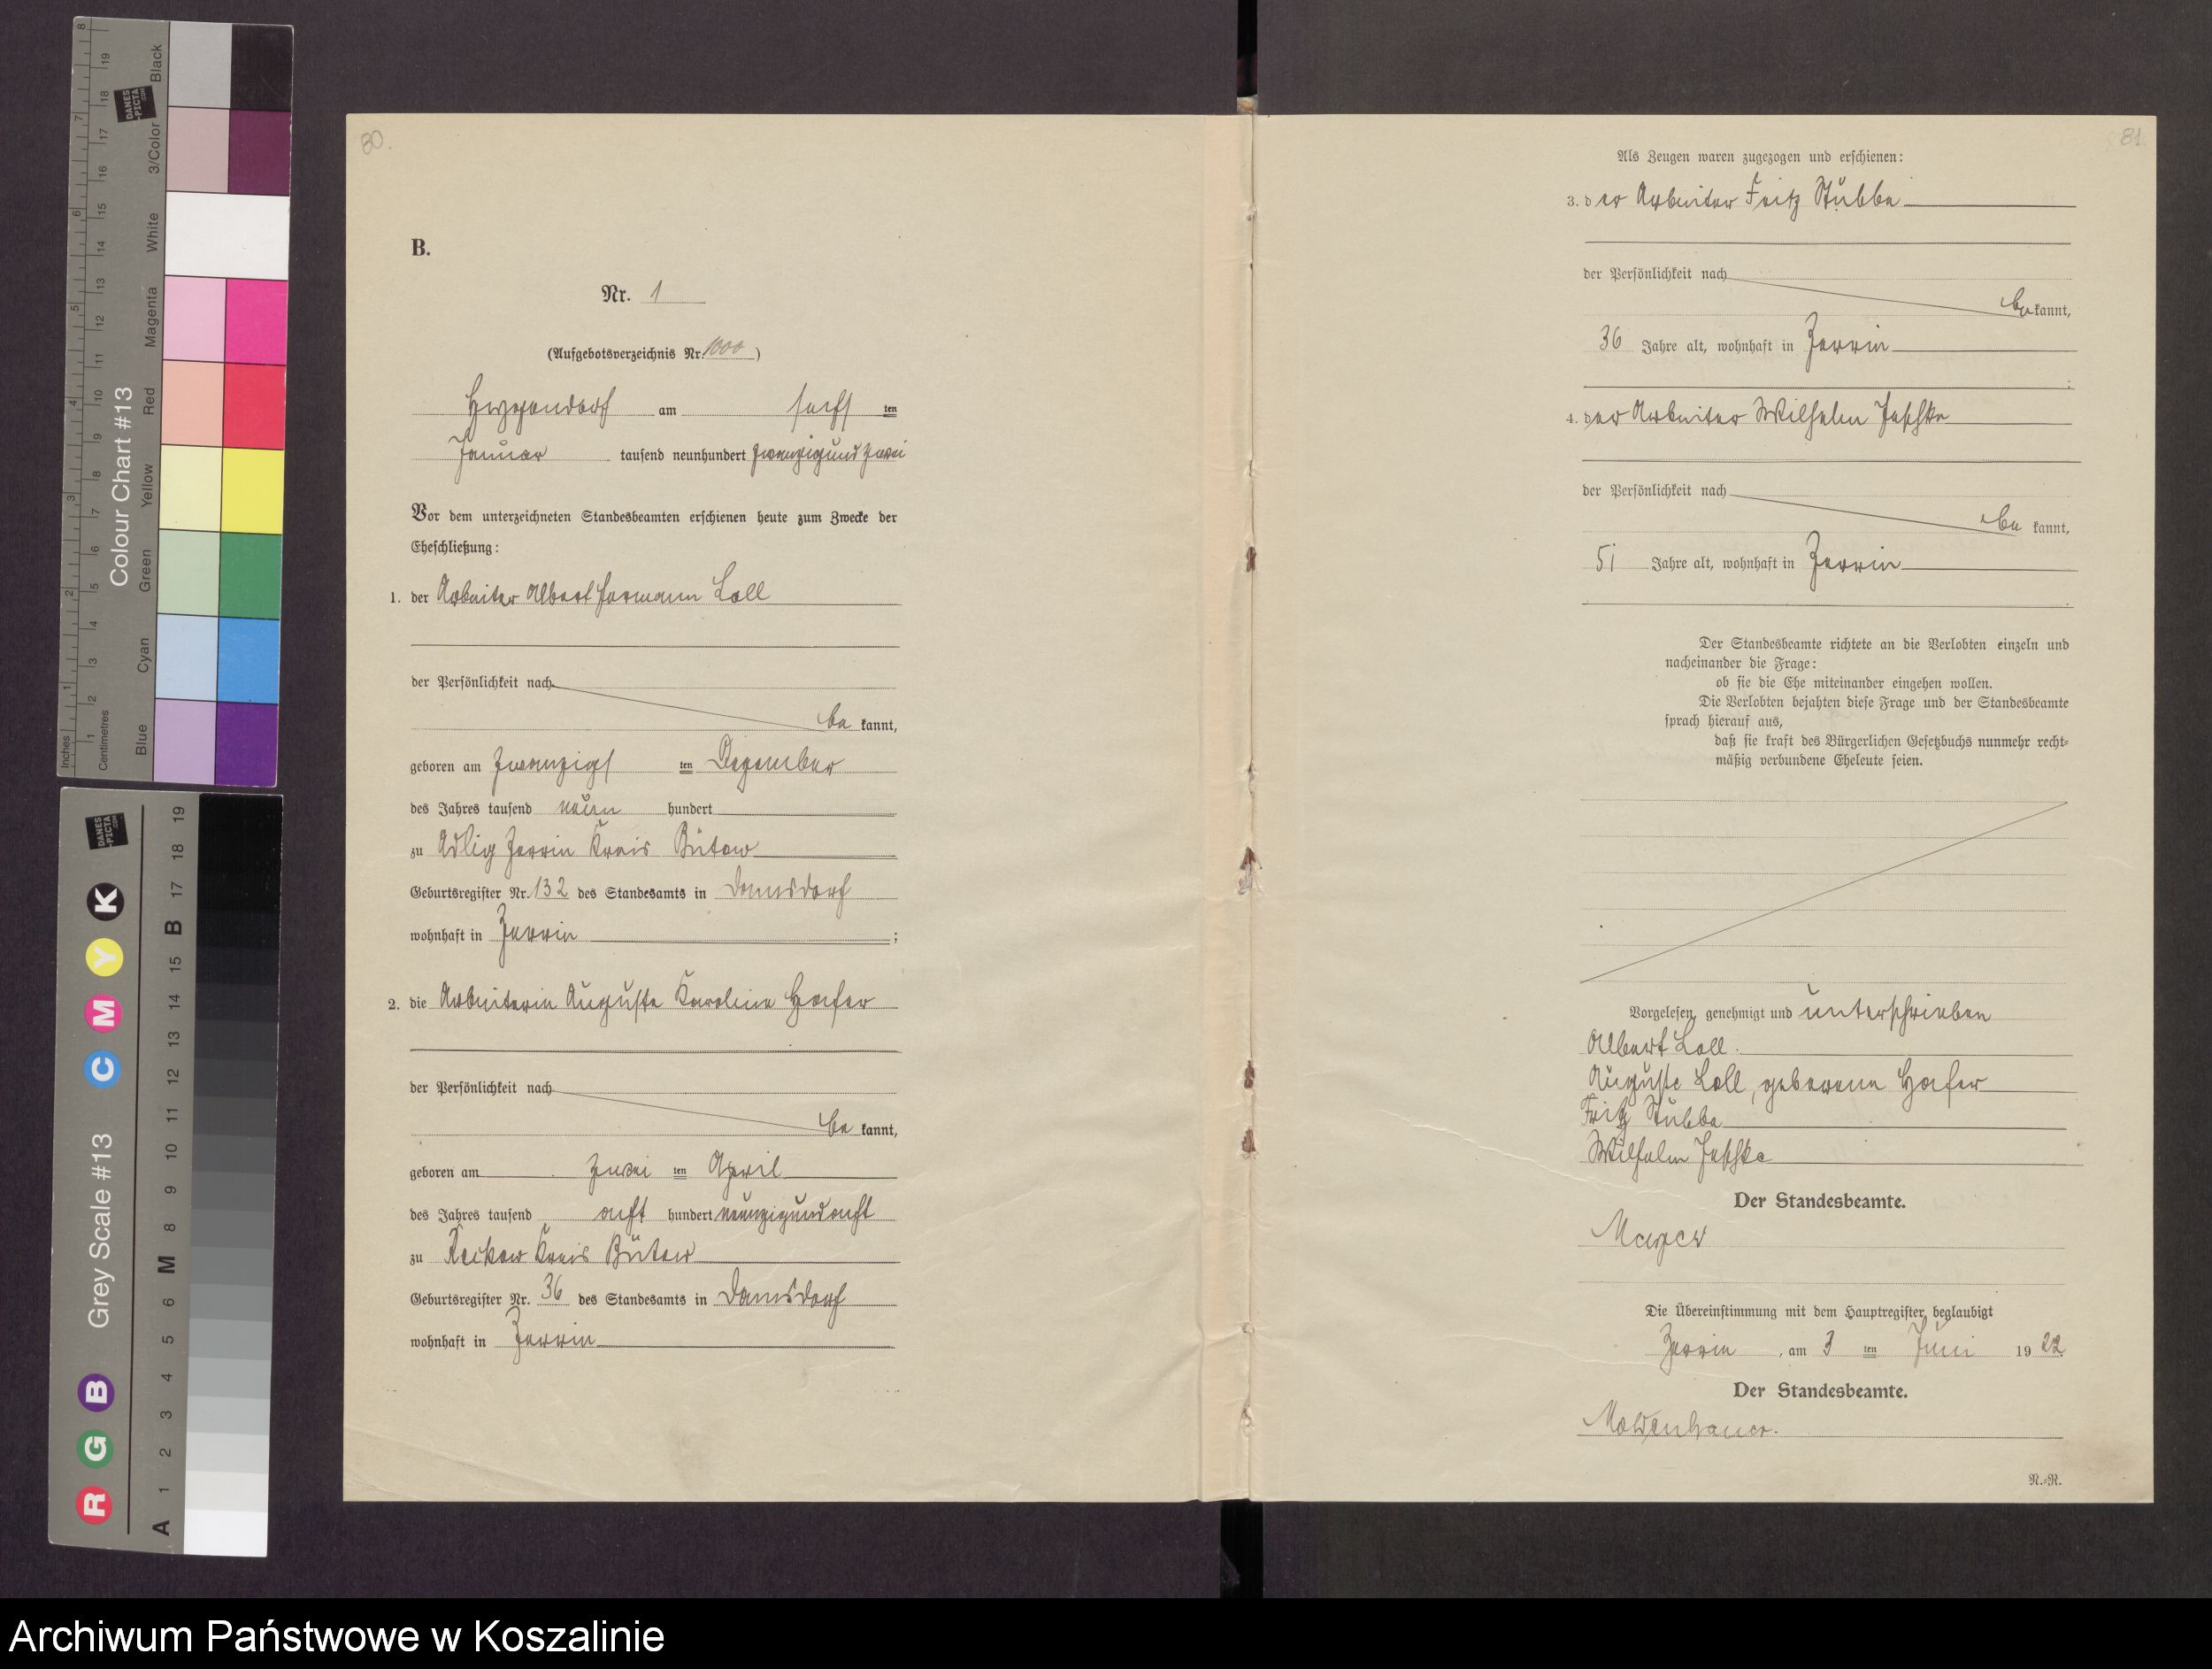 80.
B.
Nr. 1
(Aufgebotsverzeichnis Nr. 1000)
am sechsten
Januar tausend neunhundert zwanzigundzwei
Vor dem unterzeichneten Standesbeamten erschienen heute zum Zwecke der
Eheschließung:
1. der Arbeiter Albert Hermann Loll
der Persönlichkeit nach
bekannt,
geboren am zwanzigsten Dezember
des Jahres tausend neun hundert
zu Adlig Zerrin Kreis Bütow
Geburtsregister Nr. 132 des Standesamts in Damsdorf
wohnhaft in Zerrin ;
2. die Arbeiterin Auguste Karoline Hafer
der Persönlichkeit nach
bekannt,
geboren am zweiten April
des Jahres tausend acht hundert neunzigundacht
zu Reckow Kreis Bütow
Geburtsregister Nr. 36 des Standesamts in Damsdorf
wohnhaft in Zerrin
81.
Als Zeugen waren zugezogen und erschienen:
3. der Arbeiter Fritz Stubbe
der Persönlichkeit nach
bekannt,
36 Jahre alt, wohnhaft in Zerrin
4. der Arbeiter Wilhelm Jeschke
der Persönlichkeit nach
bekannt,
51 Jahre alt, wohnhaft in Zerrin
Der Standesbeamte richtete an die Verlobten einzeln und
nacheinander die Frage:
ob sie die Ehe miteinander eingehen wollen.
Die Verlobten bejahten diese Frage und der Standesbeamte
sprach hierauf aus,
daß sie kraft des Bürgerlichen Gesetzbuchs nunmehr recht-
mäßig verbundene Eheleute seien.
Vorgelesen, genehmigt und unterschrieben
Albert Loll.
Auguste Loll, geborene Hafer
Fritz Stubbe
Wilhelm Jeschke
Der Standesbeamte.
Mayer
Die Übereinstimmung mit dem Hauptregister beglaubigt
Zerrin, am 3ten Juni 1922
Der Standesbeamte.
Moldenhauer.
N.-R.
Inches
Centimetres
Colour Chart #13
Blue
Cyan
Green
Yellow
Red
Magenta
White
3/Color
Black
DANES
-PICTA
.COM
Grey Scale #13
R G B C M Y K
A 1 2 3 4 5 6 M 8 9 10 11 12 13 14 15 B 17 18 19
Archiwum Państwowe w Koszalinie